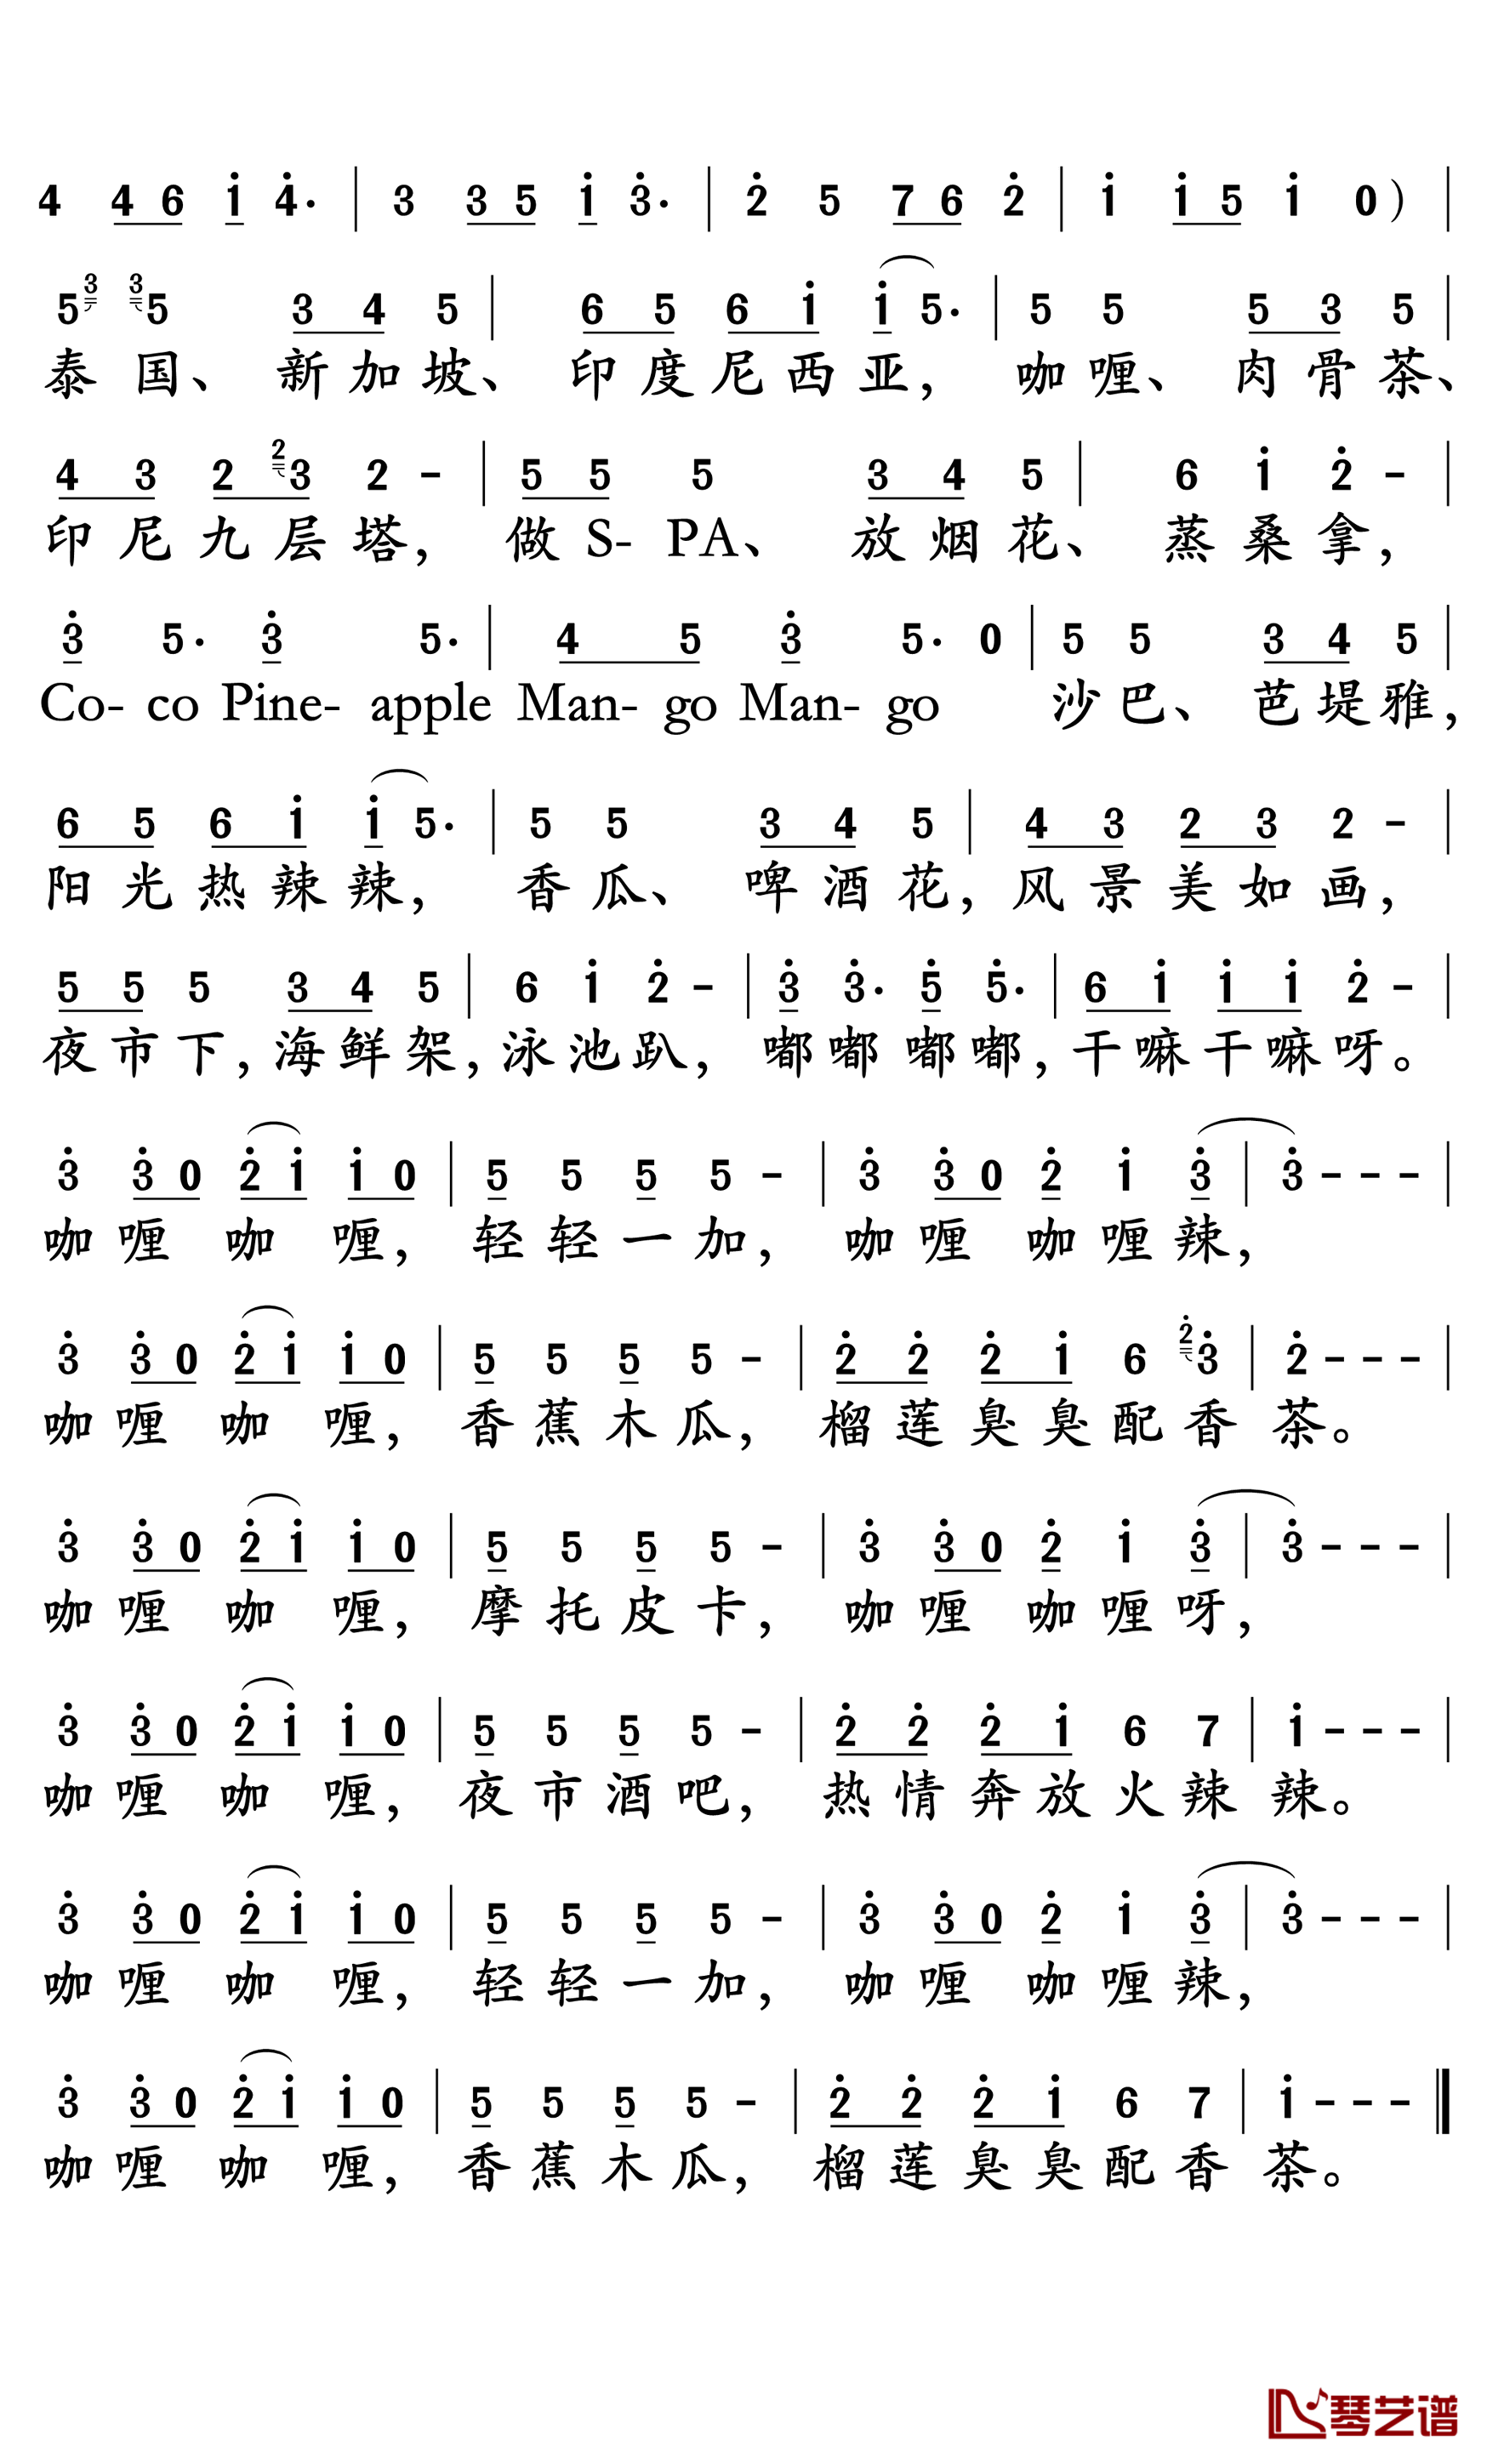 4 4 6 i 4· | 3 3 5 i 3· | 2 5 7 6 2 | i i 5 i 0) |
5 3 3 5 3 4 5 | 6 5 6 i i 5· | 5 5 5 3 5 |
泰国、 新加坡、 印度尼西亚, 咖喱、 肉骨茶、
4 3 2 2 3 2 - | 5 5 5 3 4 5 | 6 i 2 - |
印尼九层塔, 做 S- PA、 放烟花、 蒸桑拿,
3 5· 3 5· | 4 5 3 5· 0 | 5 5 3 4 5 |
Co- co Pine- apple Man- go Man- go 沙巴、 芭堤雅,
6 5 6 i i 5· | 5 5 3 4 5 | 4 3 2 3 2 - |
阳光热辣辣, 香瓜、 啤酒花, 风景美如画,
5 5 5 3 4 5 | 6 i 2 - | 3 3· 5 5· | 6 i i i 2 - |
夜市下, 海鲜架, 泳池趴, 嘟嘟嘟嘟, 干嘛干嘛呀。
3 3 0 2 i i 0 | 5 5 5 5 - | 3 3 0 2 i 3 | 3 - - - |
咖喱 咖 喱, 轻轻一加, 咖喱 咖喱辣,
3 3 0 2 i i 0 | 5 5 5 5 - | 2 2 2 i 6 2 3 | 2 - - - |
咖喱 咖 喱, 香蕉木瓜, 榴莲臭臭配香茶。
3 3 0 2 i i 0 | 5 5 5 5 - | 3 3 0 2 i 3 | 3 - - - |
咖喱 咖 喱, 摩托皮卡, 咖喱 咖喱呀,
3 3 0 2 i i 0 | 5 5 5 5 - | 2 2 2 i 6 7 | i - - - |
咖喱 咖 喱, 夜市酒吧, 热情奔放火辣辣。
3 3 0 2 i i 0 | 5 5 5 5 - | 3 3 0 2 i 3 | 3 - - - |
咖喱 咖 喱, 轻轻一加, 咖喱 咖喱辣,
3 3 0 2 i i 0 | 5 5 5 5 - | 2 2 2 i 6 7 | i - - - ‖
咖喱 咖 喱, 香蕉木瓜, 榴莲臭臭配香茶。
琴艺谱